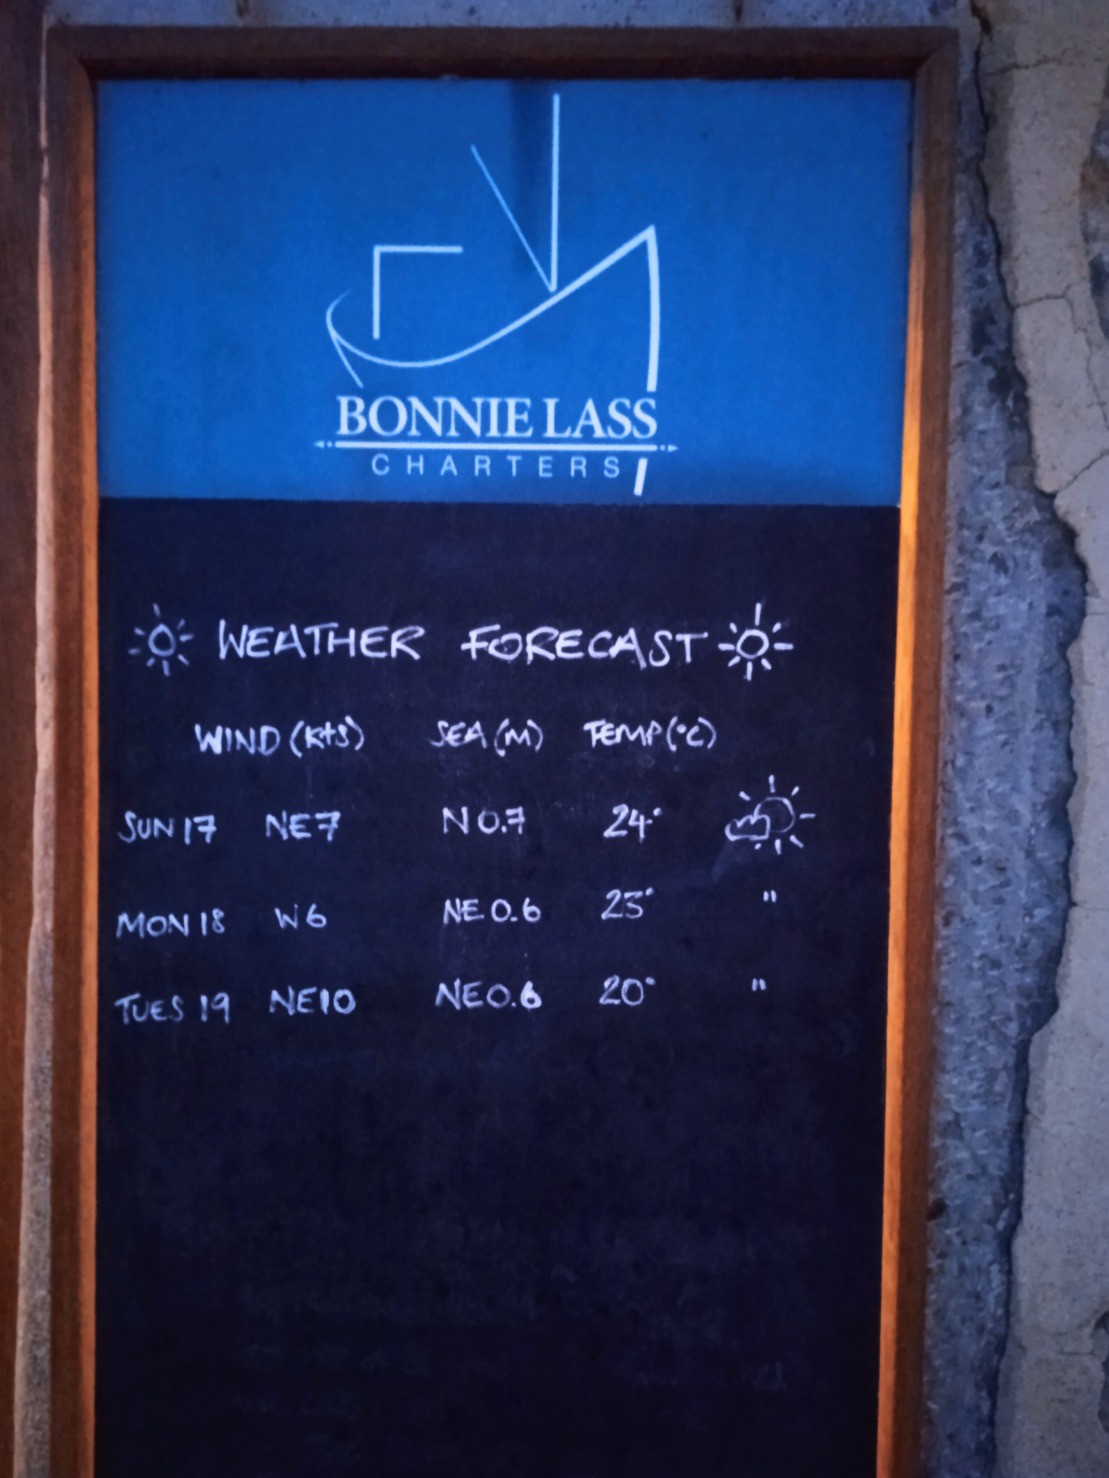 BONNIE LASS
CHARTERS
WEATHER FORECAST
WIND (KtS) SEA (M) TEMP (°C)
SUN 17 NE7 N 0.7 24°
MON 18 W6 NE 0.6 23° "
TUES 19 NE10 NE0.6 20° "